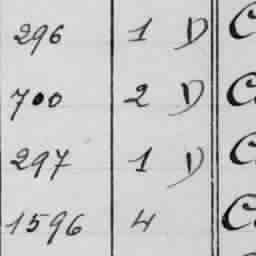 296 1 D C
700 2 D C
297 1 D C
1596 4 C